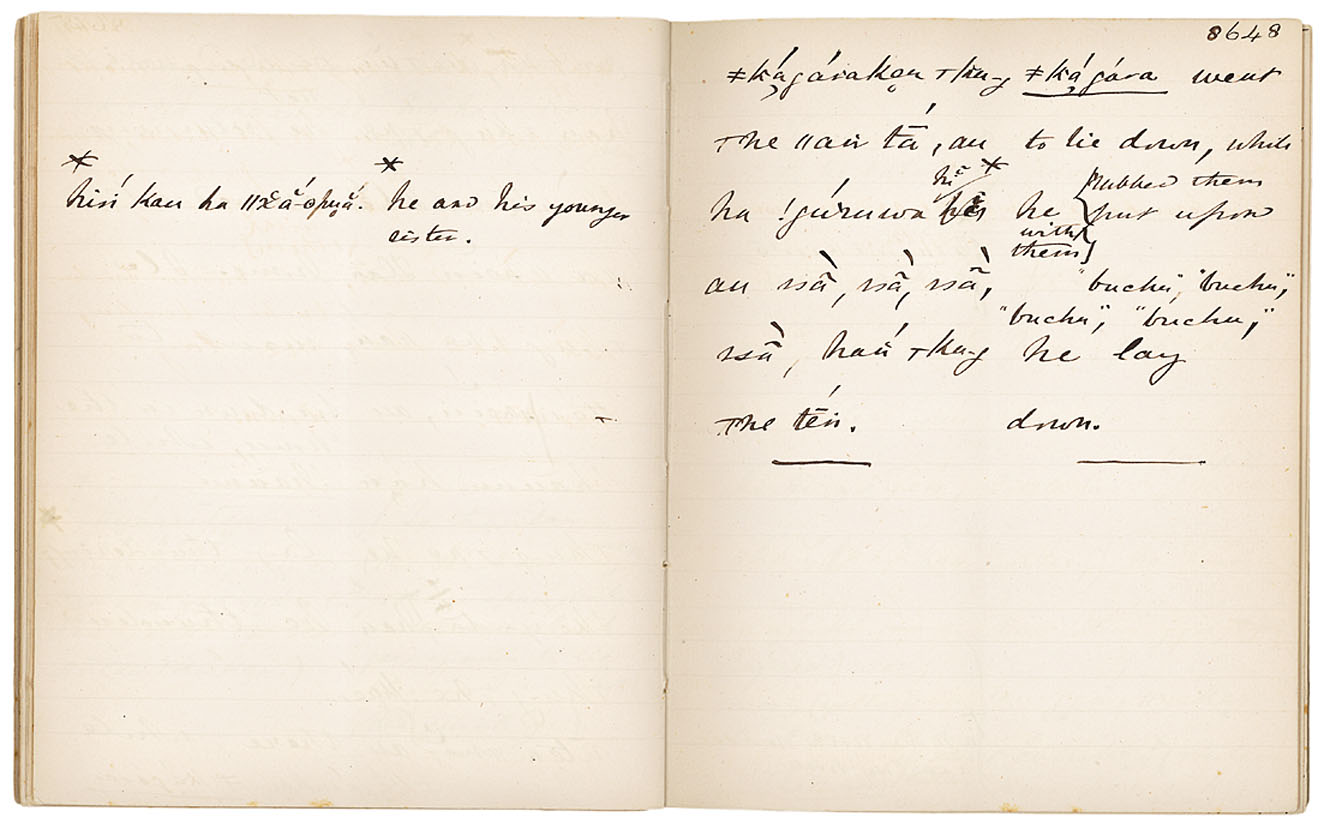 hiń kau ha ǁx̌ā́-ǒpuắ. he and his younger
sister.
8648
ǂká̦gára kǫu ⊤ku-g ǂká̦gára went
⊤he ǁau tá̄, au to lie down, while
hĭ
ha !gúruwa he rubbed them
put upon
with
them
au sā̀, sā̀, sā̀, "buchu", "buchu",
"buchu", "buchu,"
sā̀, hań ⊤ku-g he lay
⊤he tḗn. down.